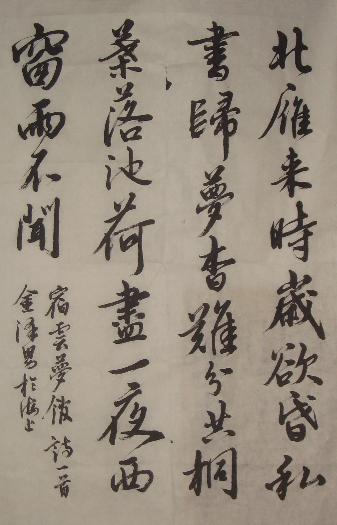 北雁来時歲欲昏私
書歸夢杳難分井桐
葉落池荷盡一夜西
窗雨不聞
宿雲夢館詩一首
金澤男於海上